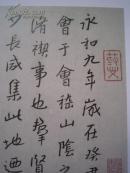 永和九年歲在癸
會于會稽山陰之
脩禊事也羣賢
少長咸集此地